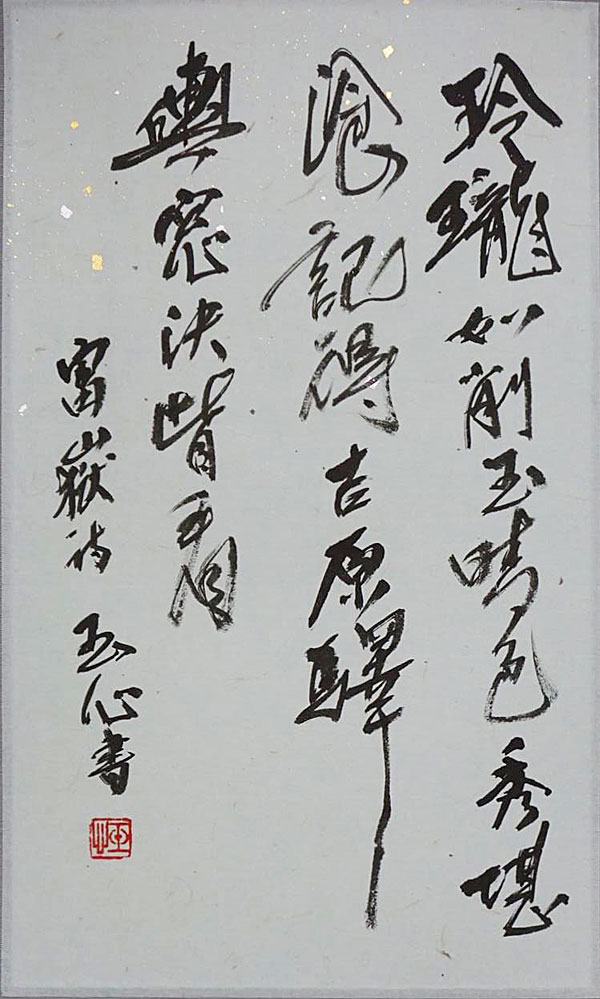 玲瓏如削玉晴色秀堪
湌記得吉原驛
輿窓決眥看
富嶽詩 玉心書